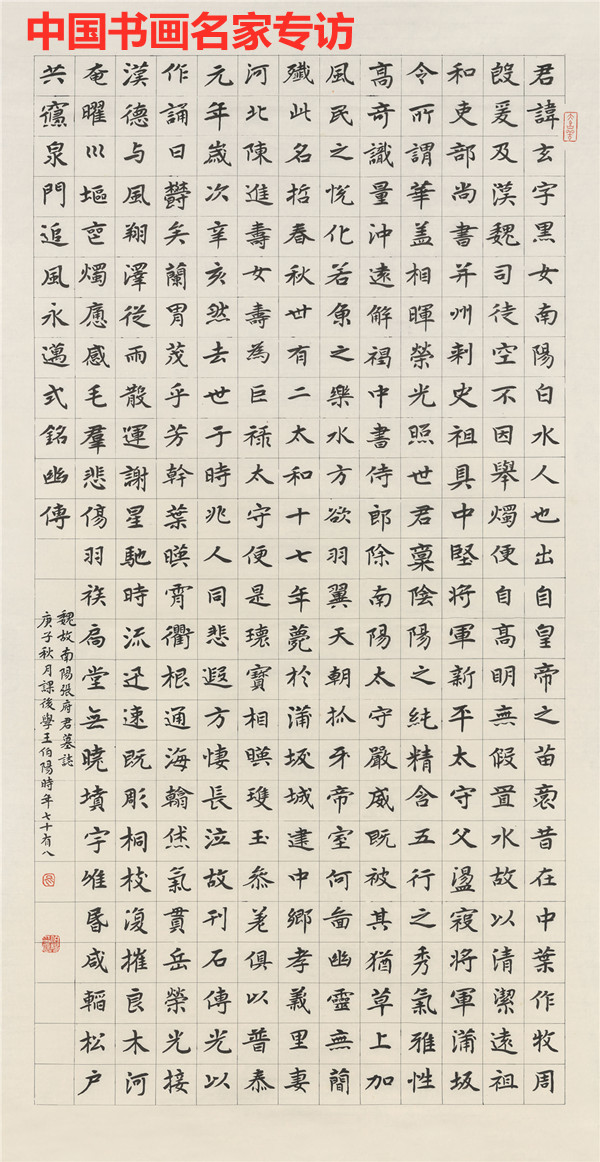 中国书画名家专访
君諱玄字黑女南陽白水人也出自皇帝之苗裔昔在中葉作牧周
殷爰及漢魏司徒空不因舉燭便自高明無假置水故以清潔遠祖
和吏部尚書并州刺史祖具中堅將軍新平太守父盪寇將軍蒲坂
令所謂華盖相暉榮光照世君稟陰陽之純精含五行之秀氣雅性
高奇識量沖遠解褐中書侍郎除南陽太守嚴威既被其猶草上加
風民之悅化若魚之樂水方欲羽翼天朝抓牙帝室何啚幽靈無蕳
殲此名哲春秋卅有二太和十七年薨於蒲坂城建中鄉孝義里妻
河北陳進壽女壽為巨禄太守便是瓌寶相暎玉参差俱以普泰
元年歲次辛亥然去世于時兆人同悲遐方悽長泣故刊石傳光以
作誦曰欝矣蘭胄茂乎芳幹葉暎霄衢根通海翰烋氣貫岳榮光接
漢德与風翔澤從雨散運謝星馳時流迅速既彫桐枝復摧良木河
奄曜川塸燭應感毛羣悲傷羽族扃堂無曉墳宇唯昏咸韜松户
共泉門追風永邁式銘幽傳
魏故南陽張府君墓誌
庚子秋月課後學王伯陽時年七十有八